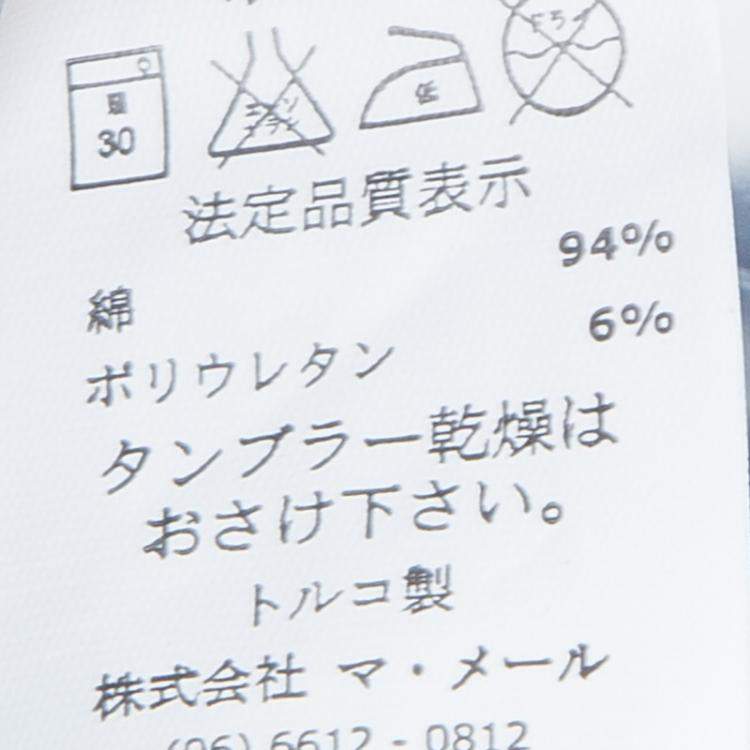 30
エンソ
サラシ
低
ドライ
法定品質表示
綿 94%
ポリウレタン 6%
タンブラー乾燥は
おさけ下さい。
トルコ製
株式会社 マ・メール
(06) 6612 - 0812